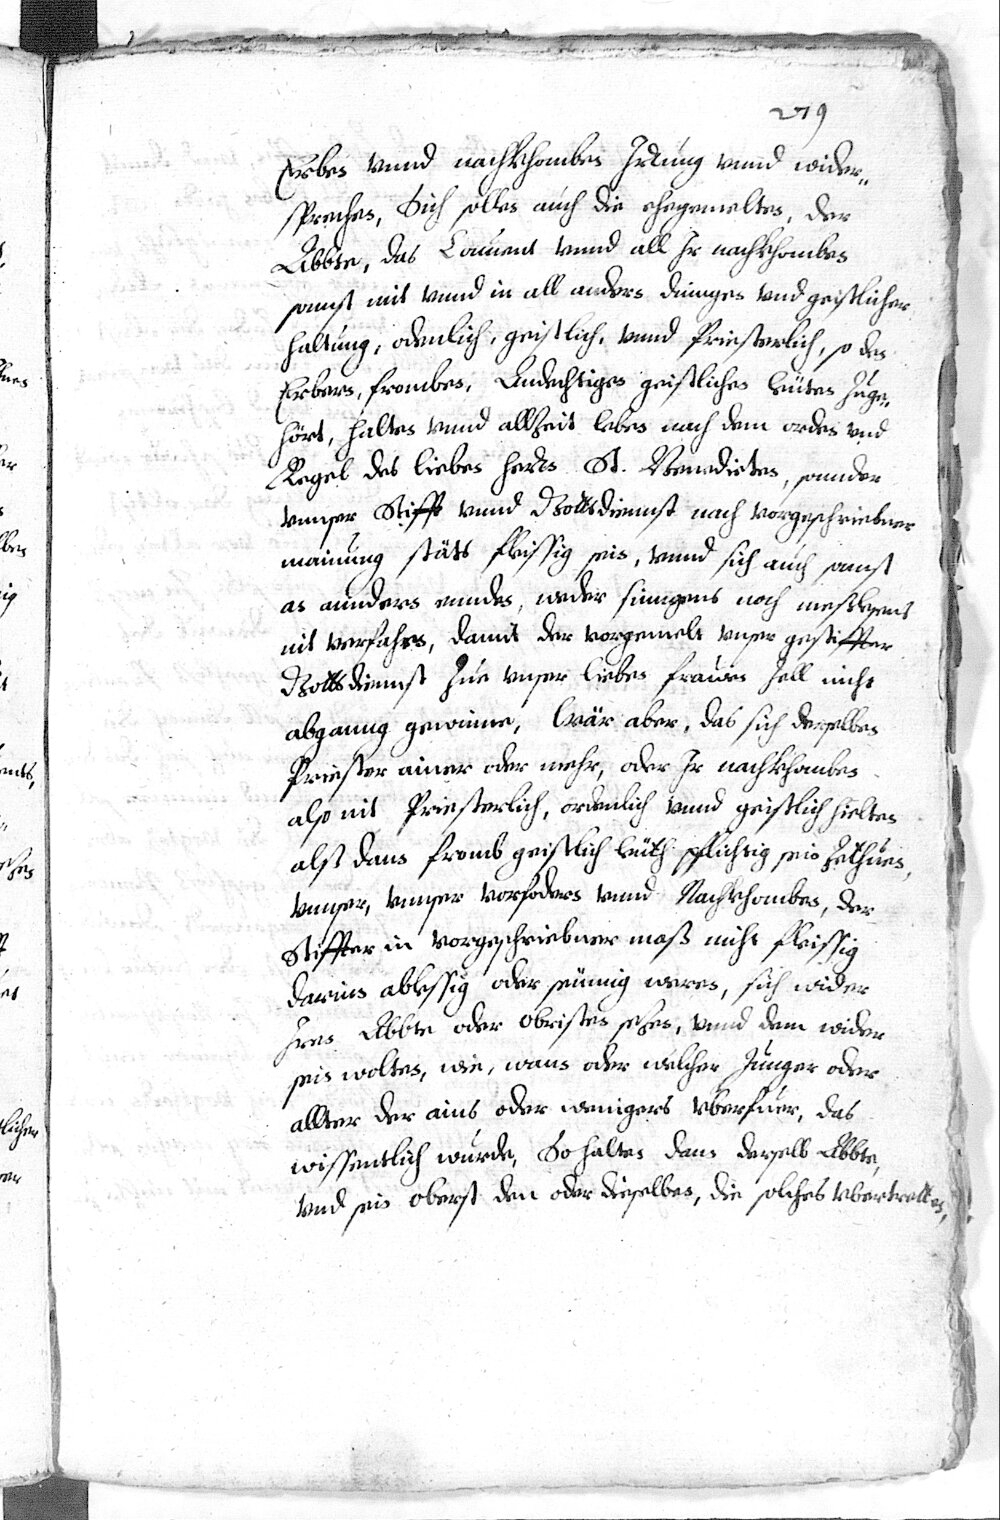 279
Erben vnnd nachkhomben Irrung vnnd wider„
sprechen, Sich sollen auch die ehegemelten, der
Abbte, das Conuent vnnd all Ir nachkhomben
sonst mit vnnd in all andern dingen vnd geistlicher
haltung, odenlich, geistlich, vnnd Priesterlich, so den
Erbern, fromben, Andechtigen geistlichen leüten Zuge„
hört, halten vnnd allzeit leben nach dem orden vnd
Regel des lieben herrn St. Benedicten, sonnder
vnnser Stifft vnnd Gottsdiennst nach vorgeschriebner
mainung stäts fleissig sein, vnnd sich auch sonst
an anndern ennden, weder singens noch messlesens
nit verfahen, damit der vorgemelt vnser gestiffter
Gottsdiennst Zue vnser lieben frauen Zell nicht
abganng gewinne, Wär aber, das sich derselben
Priester ainer oder mehr, oder Ir nachkhomben
also nit Priesterlich, ordenlich vnnd geistlich hielten
alß dann fromb geistlich leüth pflichtig sein Zethuen,
vnnser, vnnser vorfodern vnnd Nachkhomben, der
Stiffter in vorgeschriebner maß nicht fleissig
darinn ablessig oder seümig weren, sich wider
Iren Abbte oder obristen sezen, vnnd dem wider
sein wolten, wie, wann oder welcher Junger oder
allter der ains oder wenigers vberfuer, das
wissentlich wurde, So halten dann derselb Abbte,
vnd sein oberst den oder dieselben, die solches vbertretten,